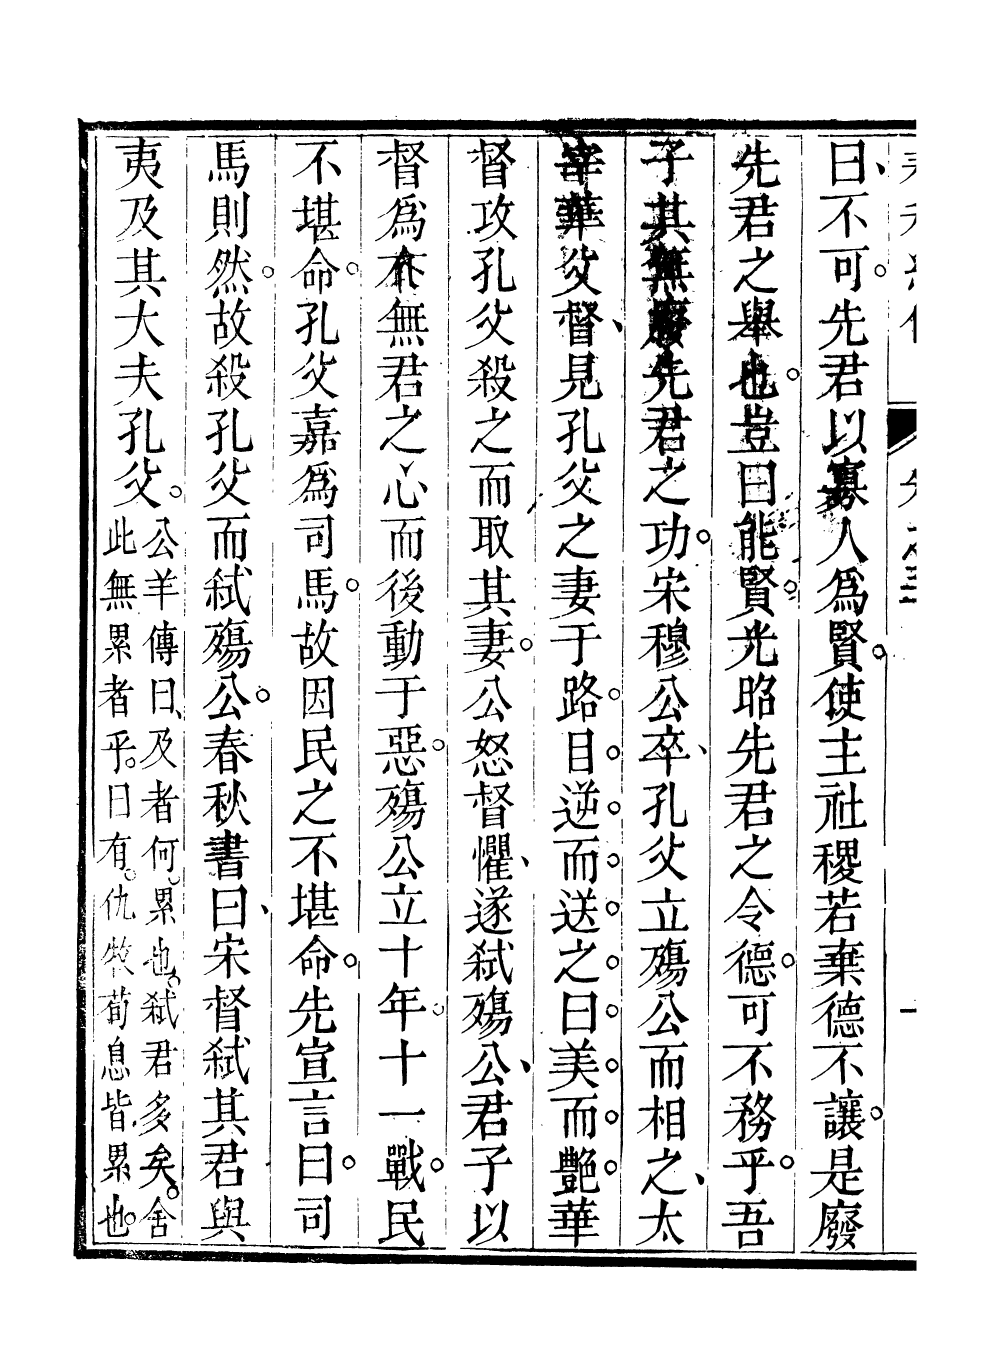 曰、不可。先君以寡人爲賢。使主社稷若棄德不讓。是廢
先君之舉也。豈曰能賢。光昭先君之令德。可不務乎。吾
子其無廢先君之功。宋穆公卒、孔父立殤公而相之、太
宰華父督、見孔父之妻于路。目。逆。而。送。之。曰。美。而。艷。華
督攻孔父殺之而取其妻。公怒督懼、遂弑殤公、君子以
督爲無君之心而後動于惡。殤公立十年。十一戰。民
不堪命。孔父嘉爲司馬。故因民之不堪命。先宣言曰。司
馬則然。故殺孔父而弑殤公。春秋書曰、宋督弑其君與
夷及其大夫孔父。
公羊傳曰、及者何。累也。弑君多矣。舍
此無累者乎。曰有。仇牧荀息皆累也。